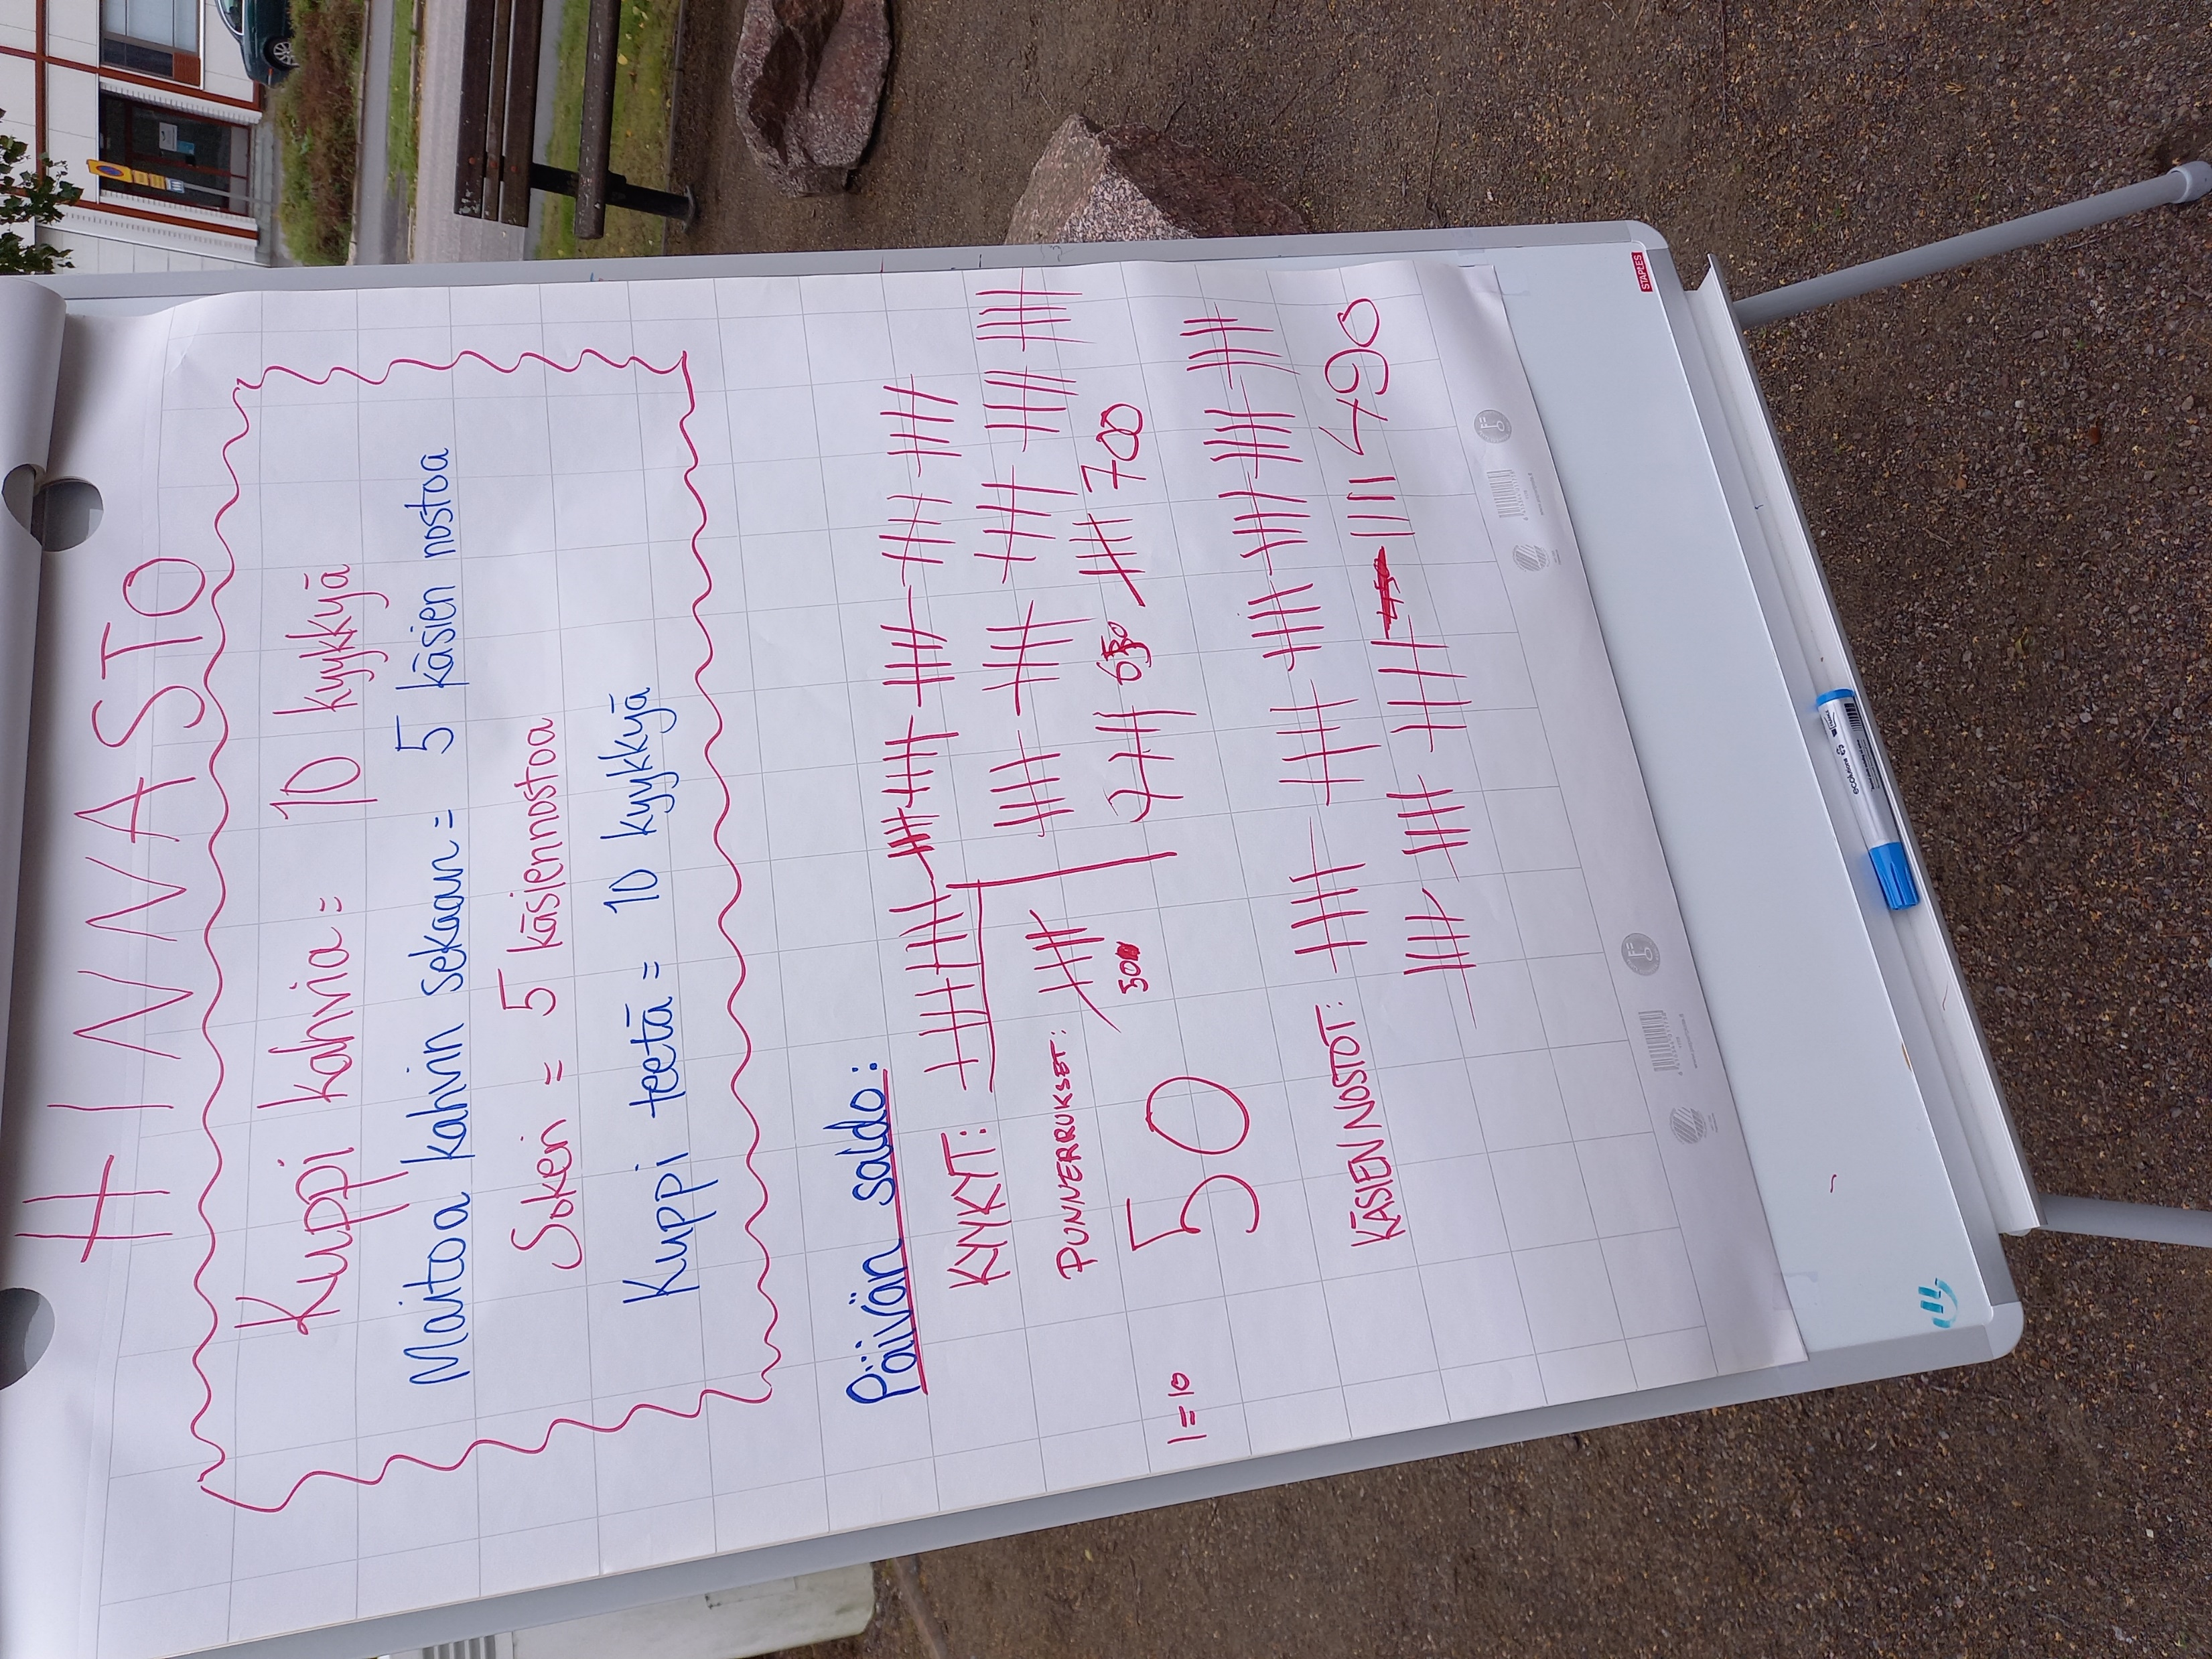 HINNASTO
Kuppi kahvia = 10 kyykkyä
Maitoa kahvin sekaan = 5 käsien nostoa
Sokeri = 5 käsiennostoa
Kuppi teetä = 10 kyykkyjä
Päivän saldo:
KYYKYT:
PUNNERRUKSET:
50
700
1 = 10
KÄSIENNOSTOT:
490
STAPLES